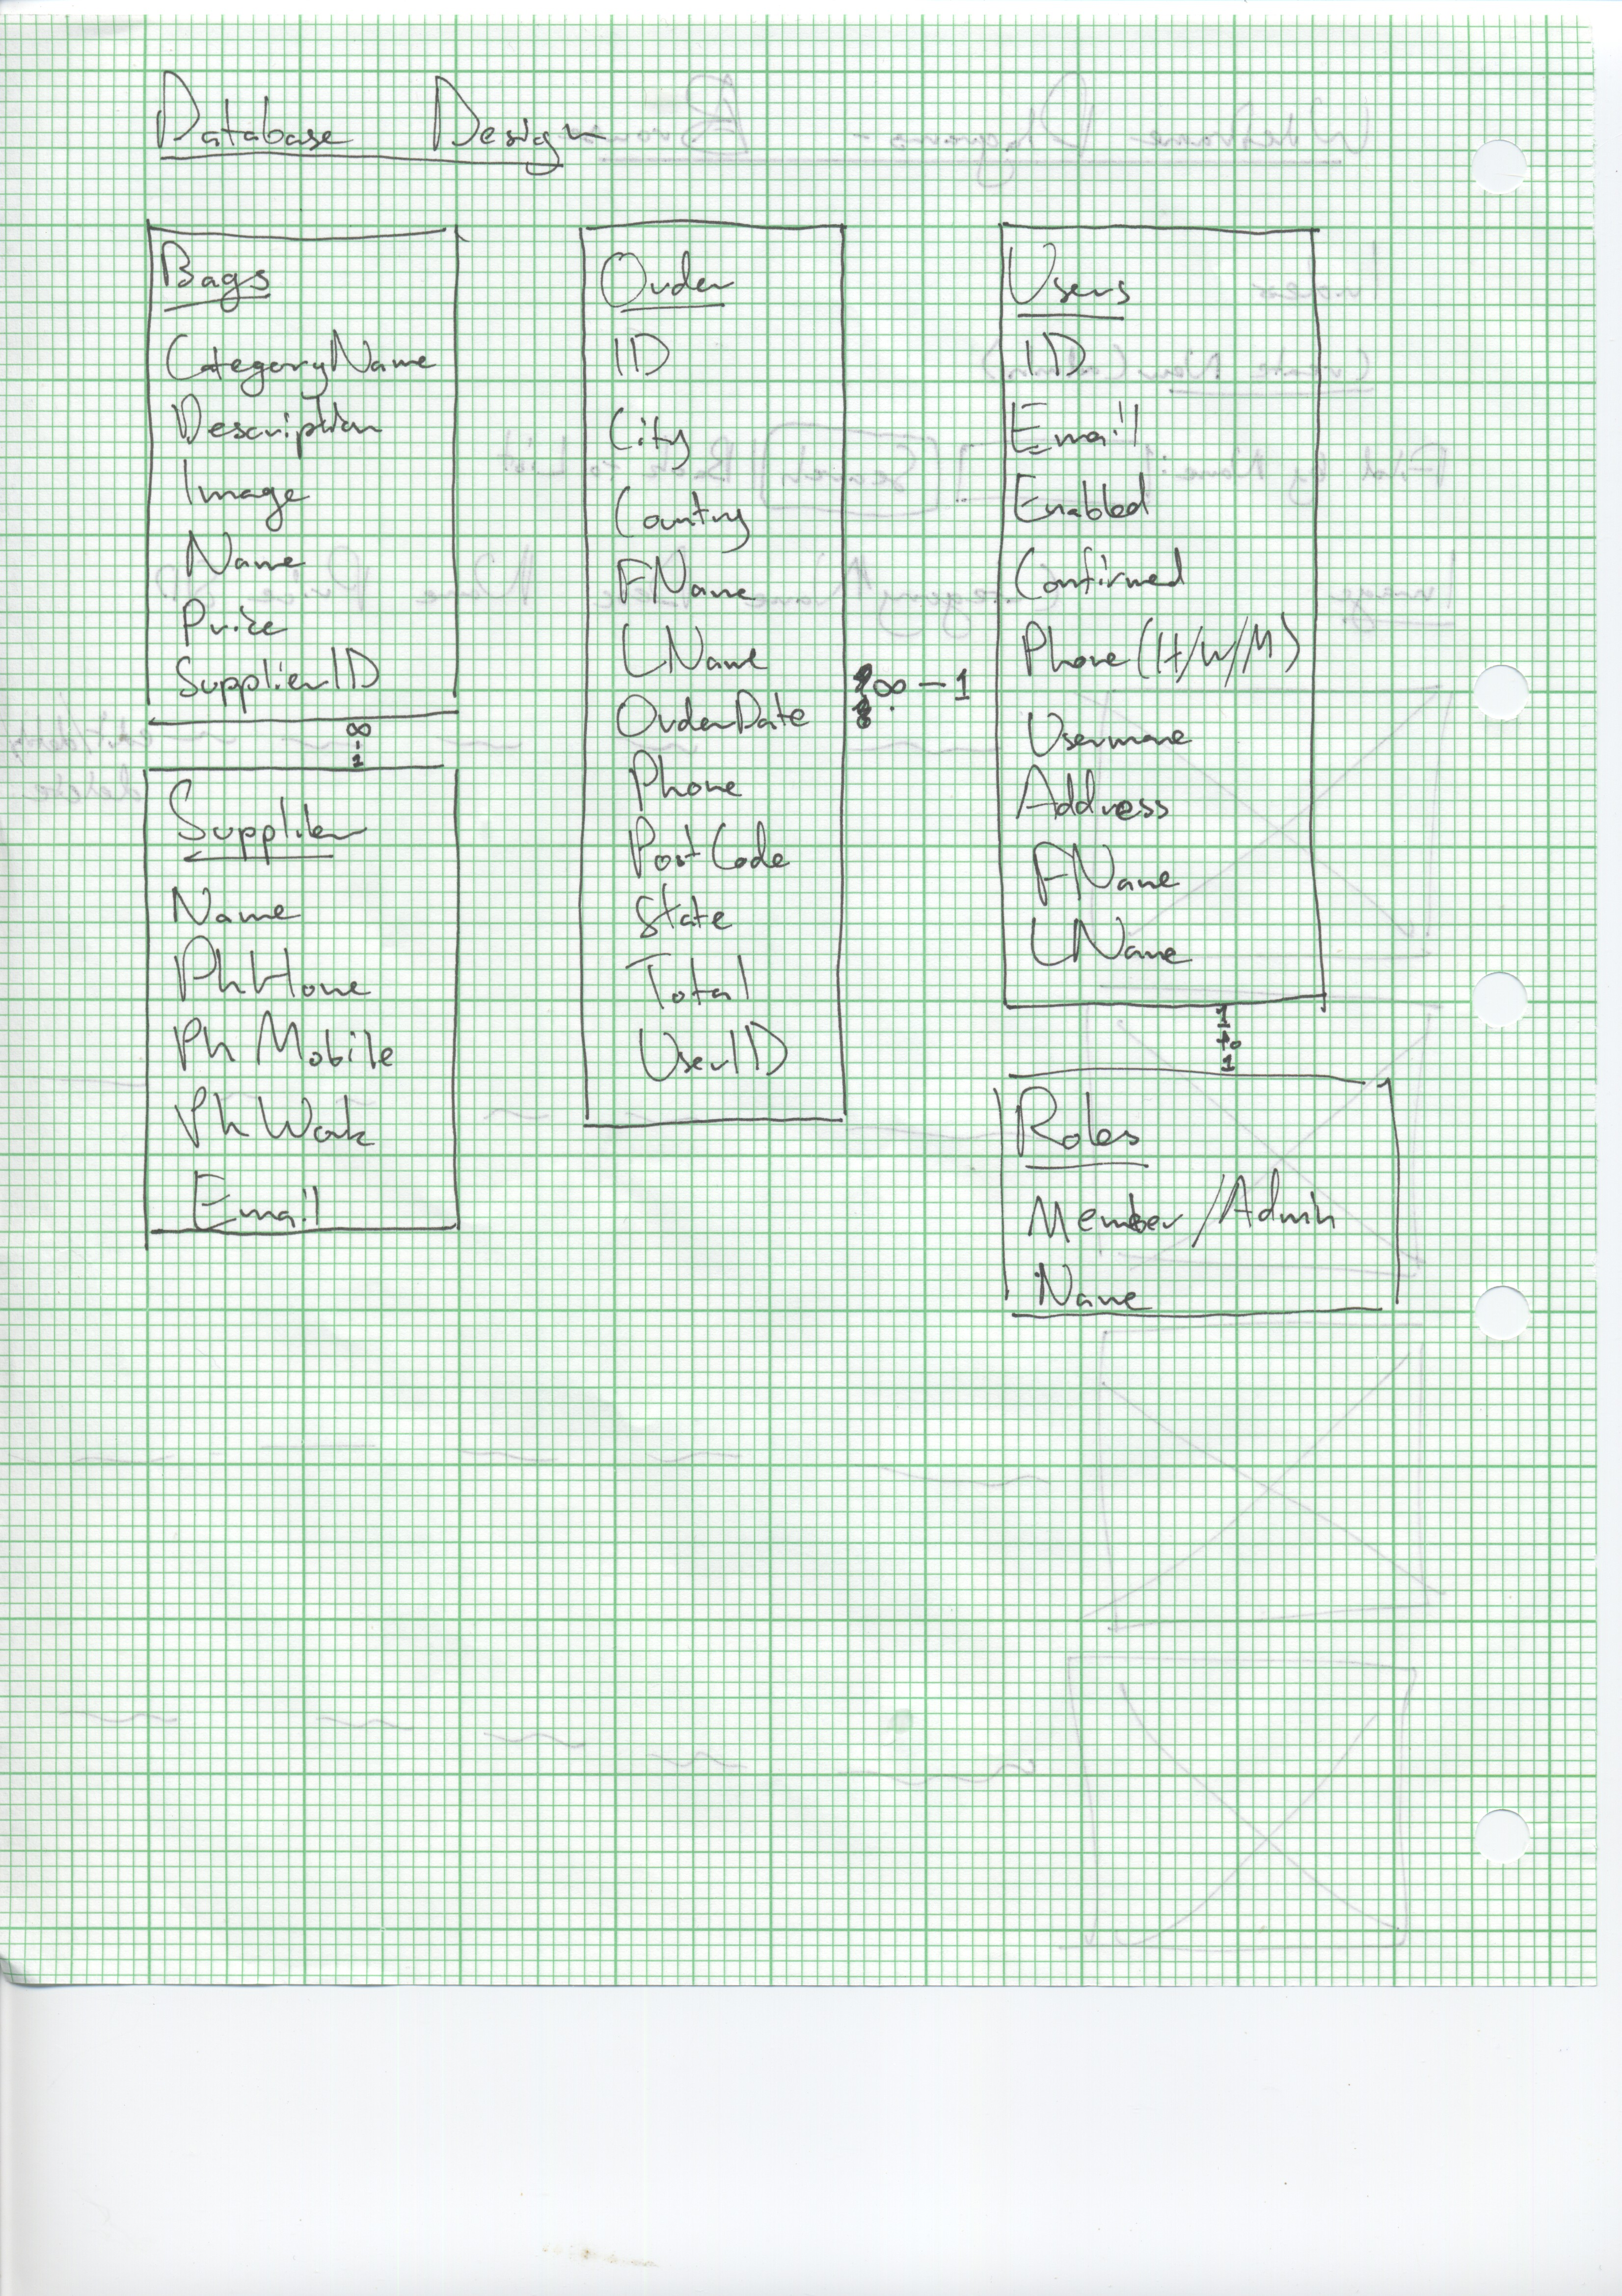 Database Design
Bags
CategoryName
Description
Image
Name
Price
SupplierID
∞
-
1
Supplier
Name
PhHome
Ph Mobile
Ph Work
Email
Order
ID
City
Country
FName
LName
OrderDate
Phone
PostCode
State
Total
UserID
∞ – 1
Users
ID
Email
Enabled
Confirmed
Phone (H/W/M)
Username
Address
FName
LName
1
to
1
Roles
Member/Admin
Name